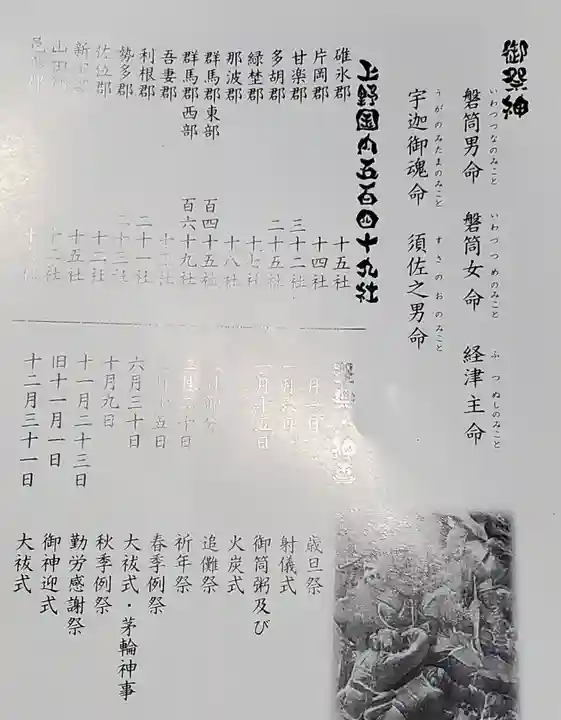 御祭神
いわつつなのみこと
磐筒男命
いわつつめのみこと
磐筒女命
ふつぬしのみこと
経津主命
うがのみたまのみこと
宇迦御魂命
すさのおのみこと
須佐之男命
上野国内五百四十九社
碓氷郡 十五社
片岡郡 十四社
甘楽郡 三十二社
多胡郡 二十五社
緑埜郡 十七社
那波郡 十八社
群馬郡東部 百四十五社
群馬郡西部 百六十九社
吾妻郡
利根郡 二十一社
勢多郡 二十三社
佐位郡 十二社
新田郡 十五社
山田郡 十二社
邑楽郡
歳旦祭
射儀式
一月十五日 御筒粥及び
火炭式
追儺祭
祈年祭
春季例祭
六月三十日 大祓式・茅輪神事
十月九日 秋季例祭
十一月二十三日 勤労感謝祭
旧十一月一日 御神迎式
十二月三十一日 大祓式